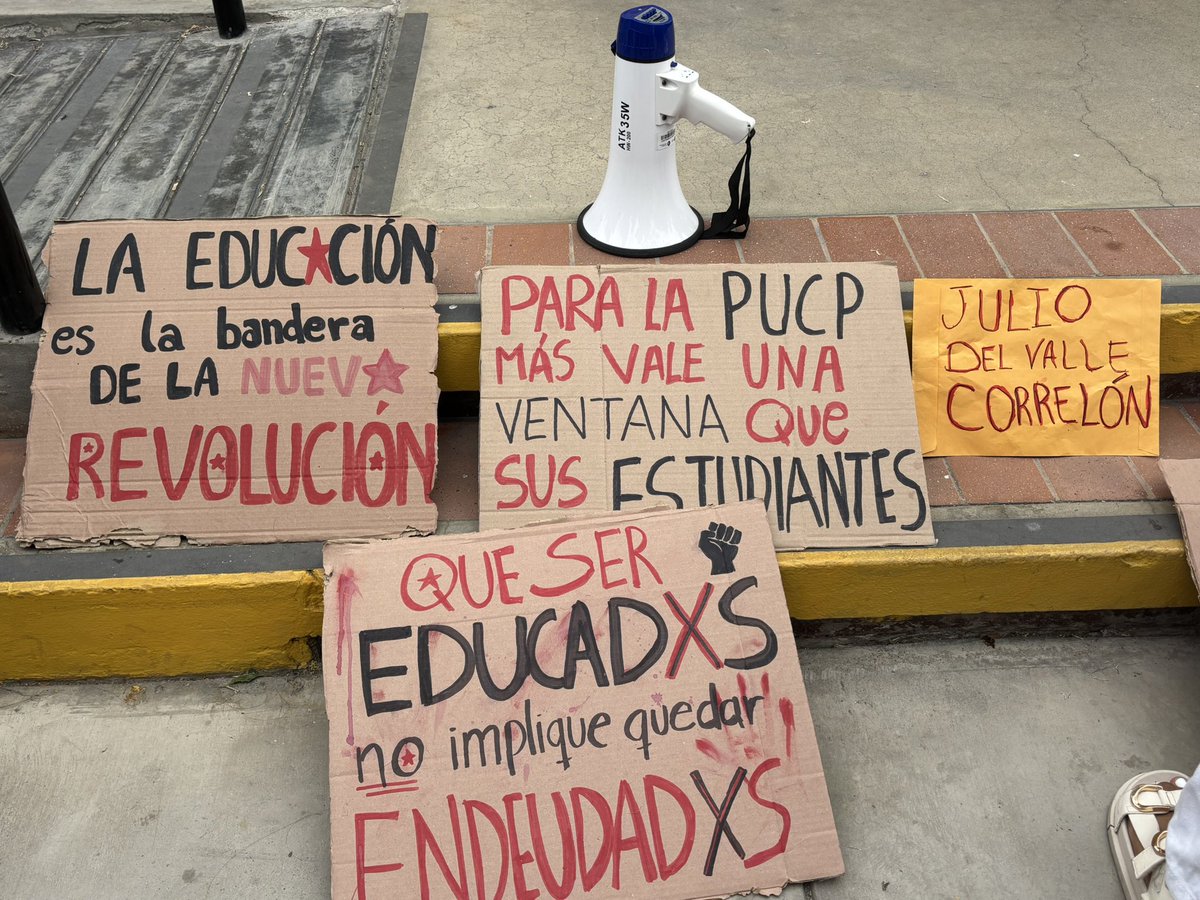 ATK 35W
LA EDUCACIÓN
es la bandera
DE LA NUEVA
REVOLUCIÓN
PARA LA PUCP
MÁS VALE UNA
VENTANA QUE
SUS ESTUDIANTES
JULIO
DEL VALLE
CORRELÓN
QUE SER
EDUCADXS
no implique quedar
ENDEUDADXS